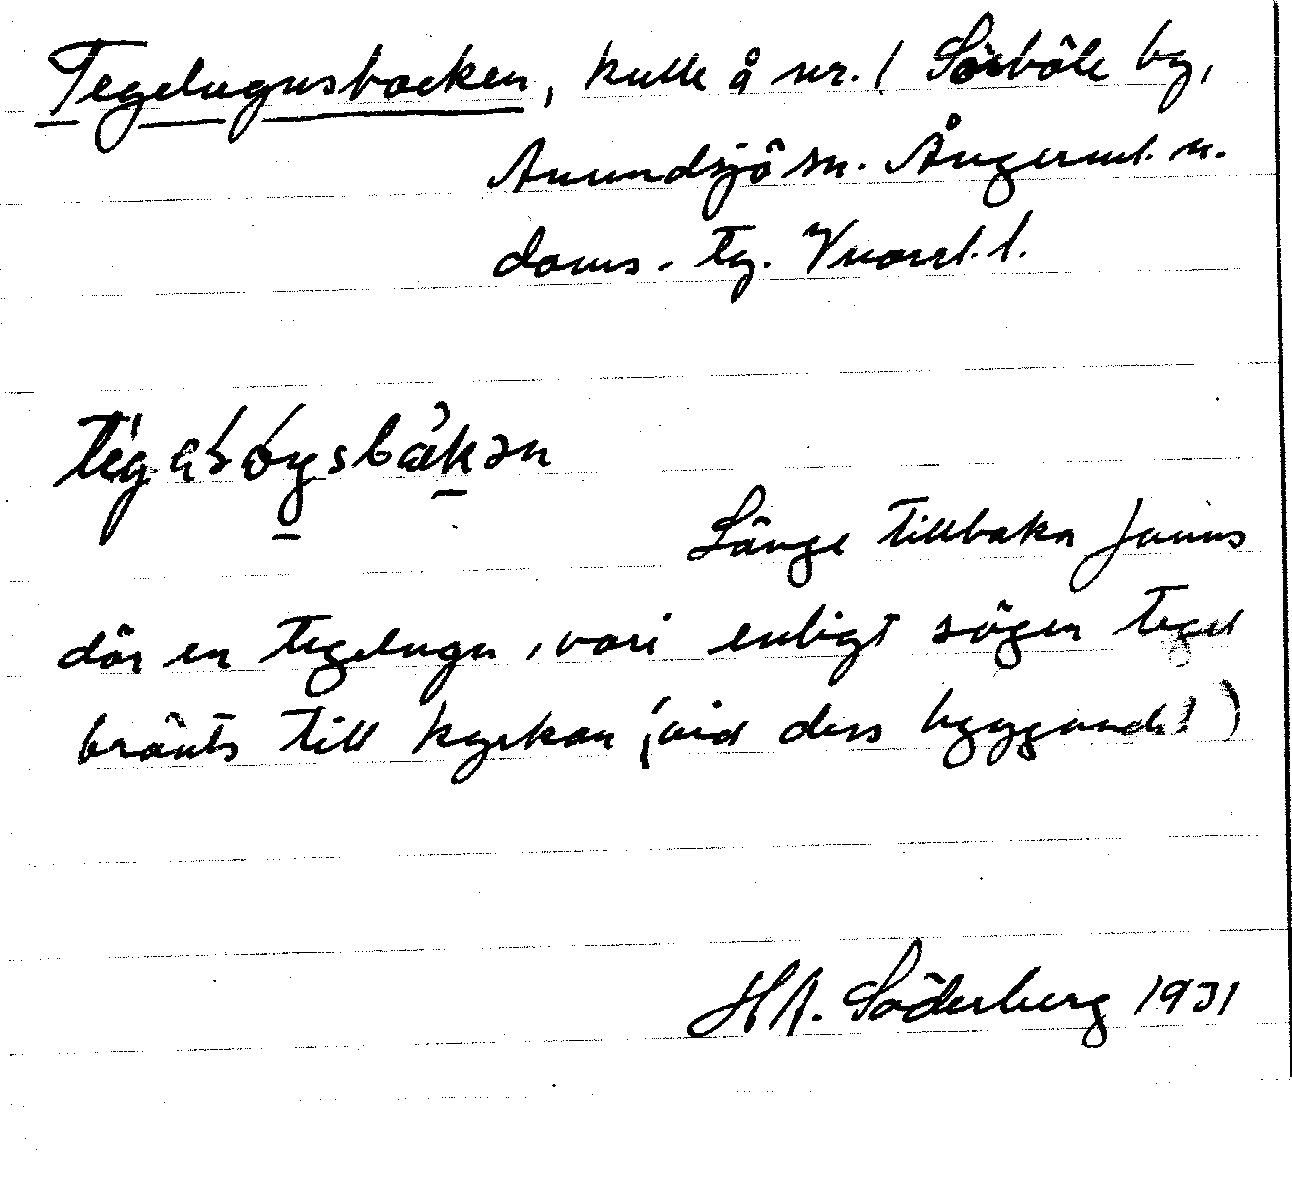 Tegelugnsbacken, kulle å nr. 1 Sörböle by,
Anundsjö sn. Ångerml. n.
doms. tg. Vnorrl. l.
Länge tillbaka fanns
där en tegelugn, vari enligt sägen tegel
bränts till kyrkan (vid dess byggande!)
H A. Söderberg 1931